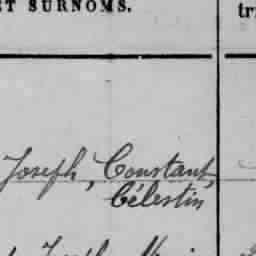 ET SURNOMS.
tr
Joseph, Constant,
Célestin
Joseph